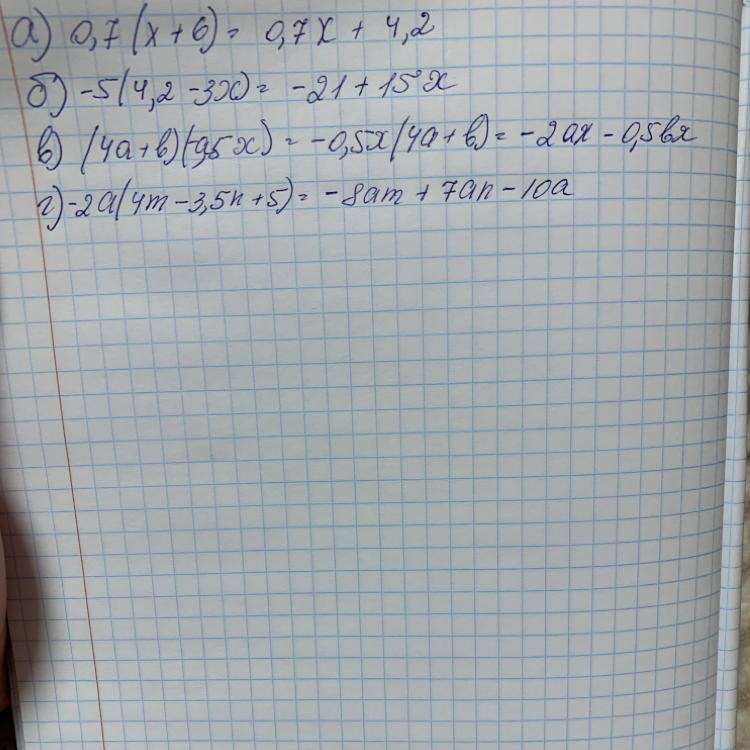 а) 0,7(x+6)= 0,7x + 4,2
б) -5(4,2-3x)= -21+15x
в) (4a+b)(-0,5x)= -0,5x(4a+b)= -2ax-0,5bx
г) -2a(4m-3,5n+5)= -8am+7an-10a